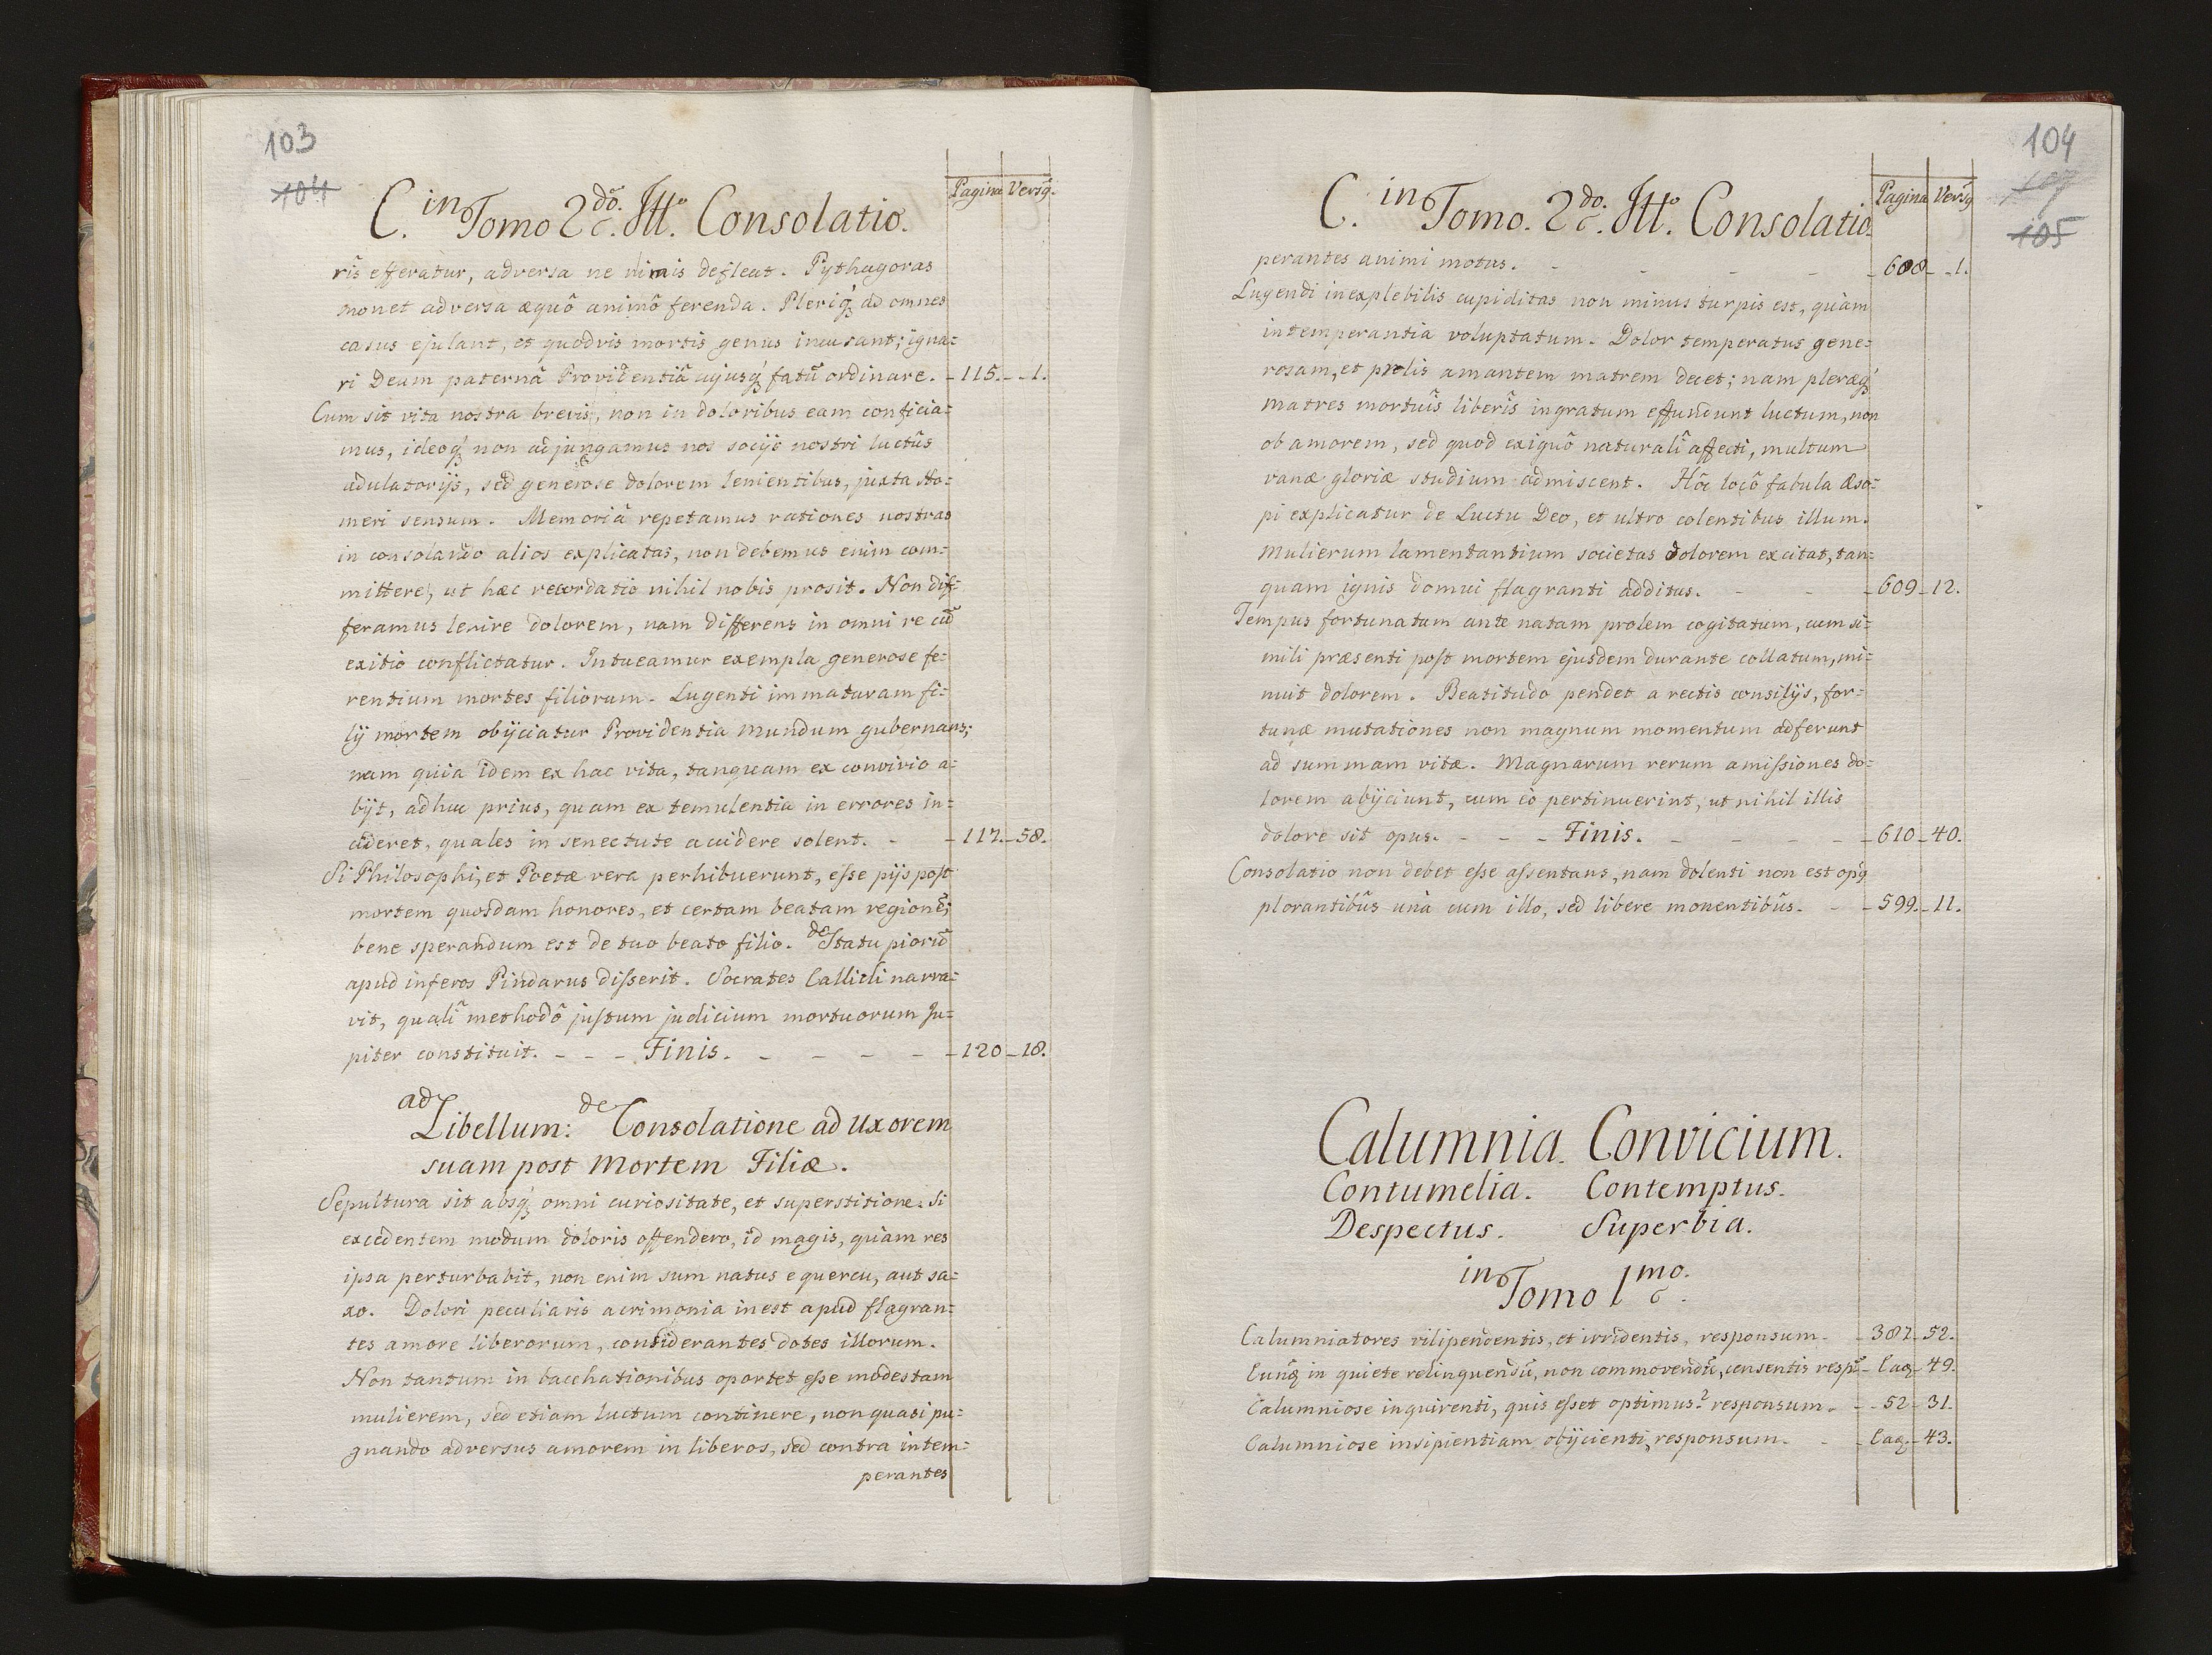 103
104
C. in Tomo 2do. Ittº Consolatio.
Pagina Versq.
ris efferatur, adversa ne nimis defleat. Pythagoras
monet adversa æquô animô ferenda. Pleriq́ȝ ad omnes
casus ejulant, et quodvis mortis genus incusant; igna=
ri Deum paternâ Providentiâ cujusq́ȝ fatū ordinare. - 115. - - 1.
Cum sit vita nostra brevis, non in doloribus eam conficia=
mus, ideoq́ȝ non adjungamus nos socijs nostri luctûs
adulatorijs, sed generose dolorem lenientibus, juxta Ho=
meri sensum. Memoriâ repetamus rationes nostras
in consolando alios explicatas, non debemus enim com=
mittere, ut hæc recordatio nihil nobis prosit. Non dif=
feramus lenire dolorem, nam differens in omni re cū
exitio conflictatur. Intueamur exempla generose fe=
rentium mortes filiorum. Lugenti immaturam fi=
lij mortem obijciatur Providentia mundum gubernans;
nam quia idem ex hac vita, tanquam ex convivio a=
bijt, adhuc prius, quam ex temulentia in errores in=
cideret, quales in senectute accidere solent. - - 117. - 58.
Si Philosophi, et Poetæ vera perhibuerunt, esse pijs post
mortem quosdam honores, et certam beatam regionē;
bene sperandum est de tuo beato filio. de Statu piorū
apud inferos Pindarus disserit. Socrates Callicli narra=
vit, quali methodô justum judicium mortuorum Ju=
piter constituit. - - - Finis. - - - - - 120 - 18.
ad Libellum: de Consolatione ad Uxorem
suam post Mortem Filiæ.
Sepultura sit absq́ȝ omni curiositate, et superstitione. Si
excedentem modum doloris offendero, id magis, quàm res
ipsa perturbabit, non enim sum natus e quercu, aut sa=
xo. Dolori peculiaris acrimonia inest apud flagran=
tes amore liberorum, considerantes dotes illorum.
Non tantum in bacchationibus oportet esse modestam
mulierem, sed etiam luctum continere, non quasi pu=
gnando adversus amorem in liberos, sed contra intem=
perantes
104
105
C. in Tomo. 2do. Ittº. Consolatio
Pagina Versq
perantes animi motus. - - - - - 608 - - 1.
Lugendi inexplebilis cupiditas non minus turpis est, quàm
intemperantia voluptatum. Dolor temperatus gene=
rosam, et prolis amantem matrem decet; nam pleræq́ȝ
matres mortuis liberis ingratum effundunt luctum, non
ob amorem, sed quod exiguô naturali affecti, multum
vanæ gloriæ studium admiscent. Hôc locô fabula Æso=
pi explicatur de Luctu Deo, et ultro colentibus illum.
Mulierum lamentantium societas dolorem excitat, tan=
quam ignis domui flagranti additus. - - - 609 - 12.
Tempus fortunatum ante natam prolem cogitatum, cum si=
mili præsenti post mortem ejusdem durante collatum, mi=
nuit dolorem. Beatitudo pendet a rectis consilijs, for=
tunæ mutationes non magnum momentum adferunt
ad summam vitæ. Magnarum rerum amissiones do=
lorem abijciunt, cum eò pertinuerint, ut nihil illis
dolore sit opus. - - - Finis. - - - - - 610 - 40.
Consolatio non debet esse assentans, nam dolenti non est opq
plorantibûs unà cum illo, sed libere monentibûs. - - 599. - 11.
Calumnia. Convicium.
Contumelia. Contemptus.
Despectus. Superbia.
in Tomo 1mo.
Calumniatores vilipendentis, et irridentis, responsum. - 387. 52.
Eunq́ȝ in quiete relinquendū, non commovendū, censentis respū - Eaq. - 49.
Calumniose inquirenti, quis esset optimus? responsum. - - 52 - 31.
Calumniose insipientiam obijcienti, responsum. - - Eaq. - 43.